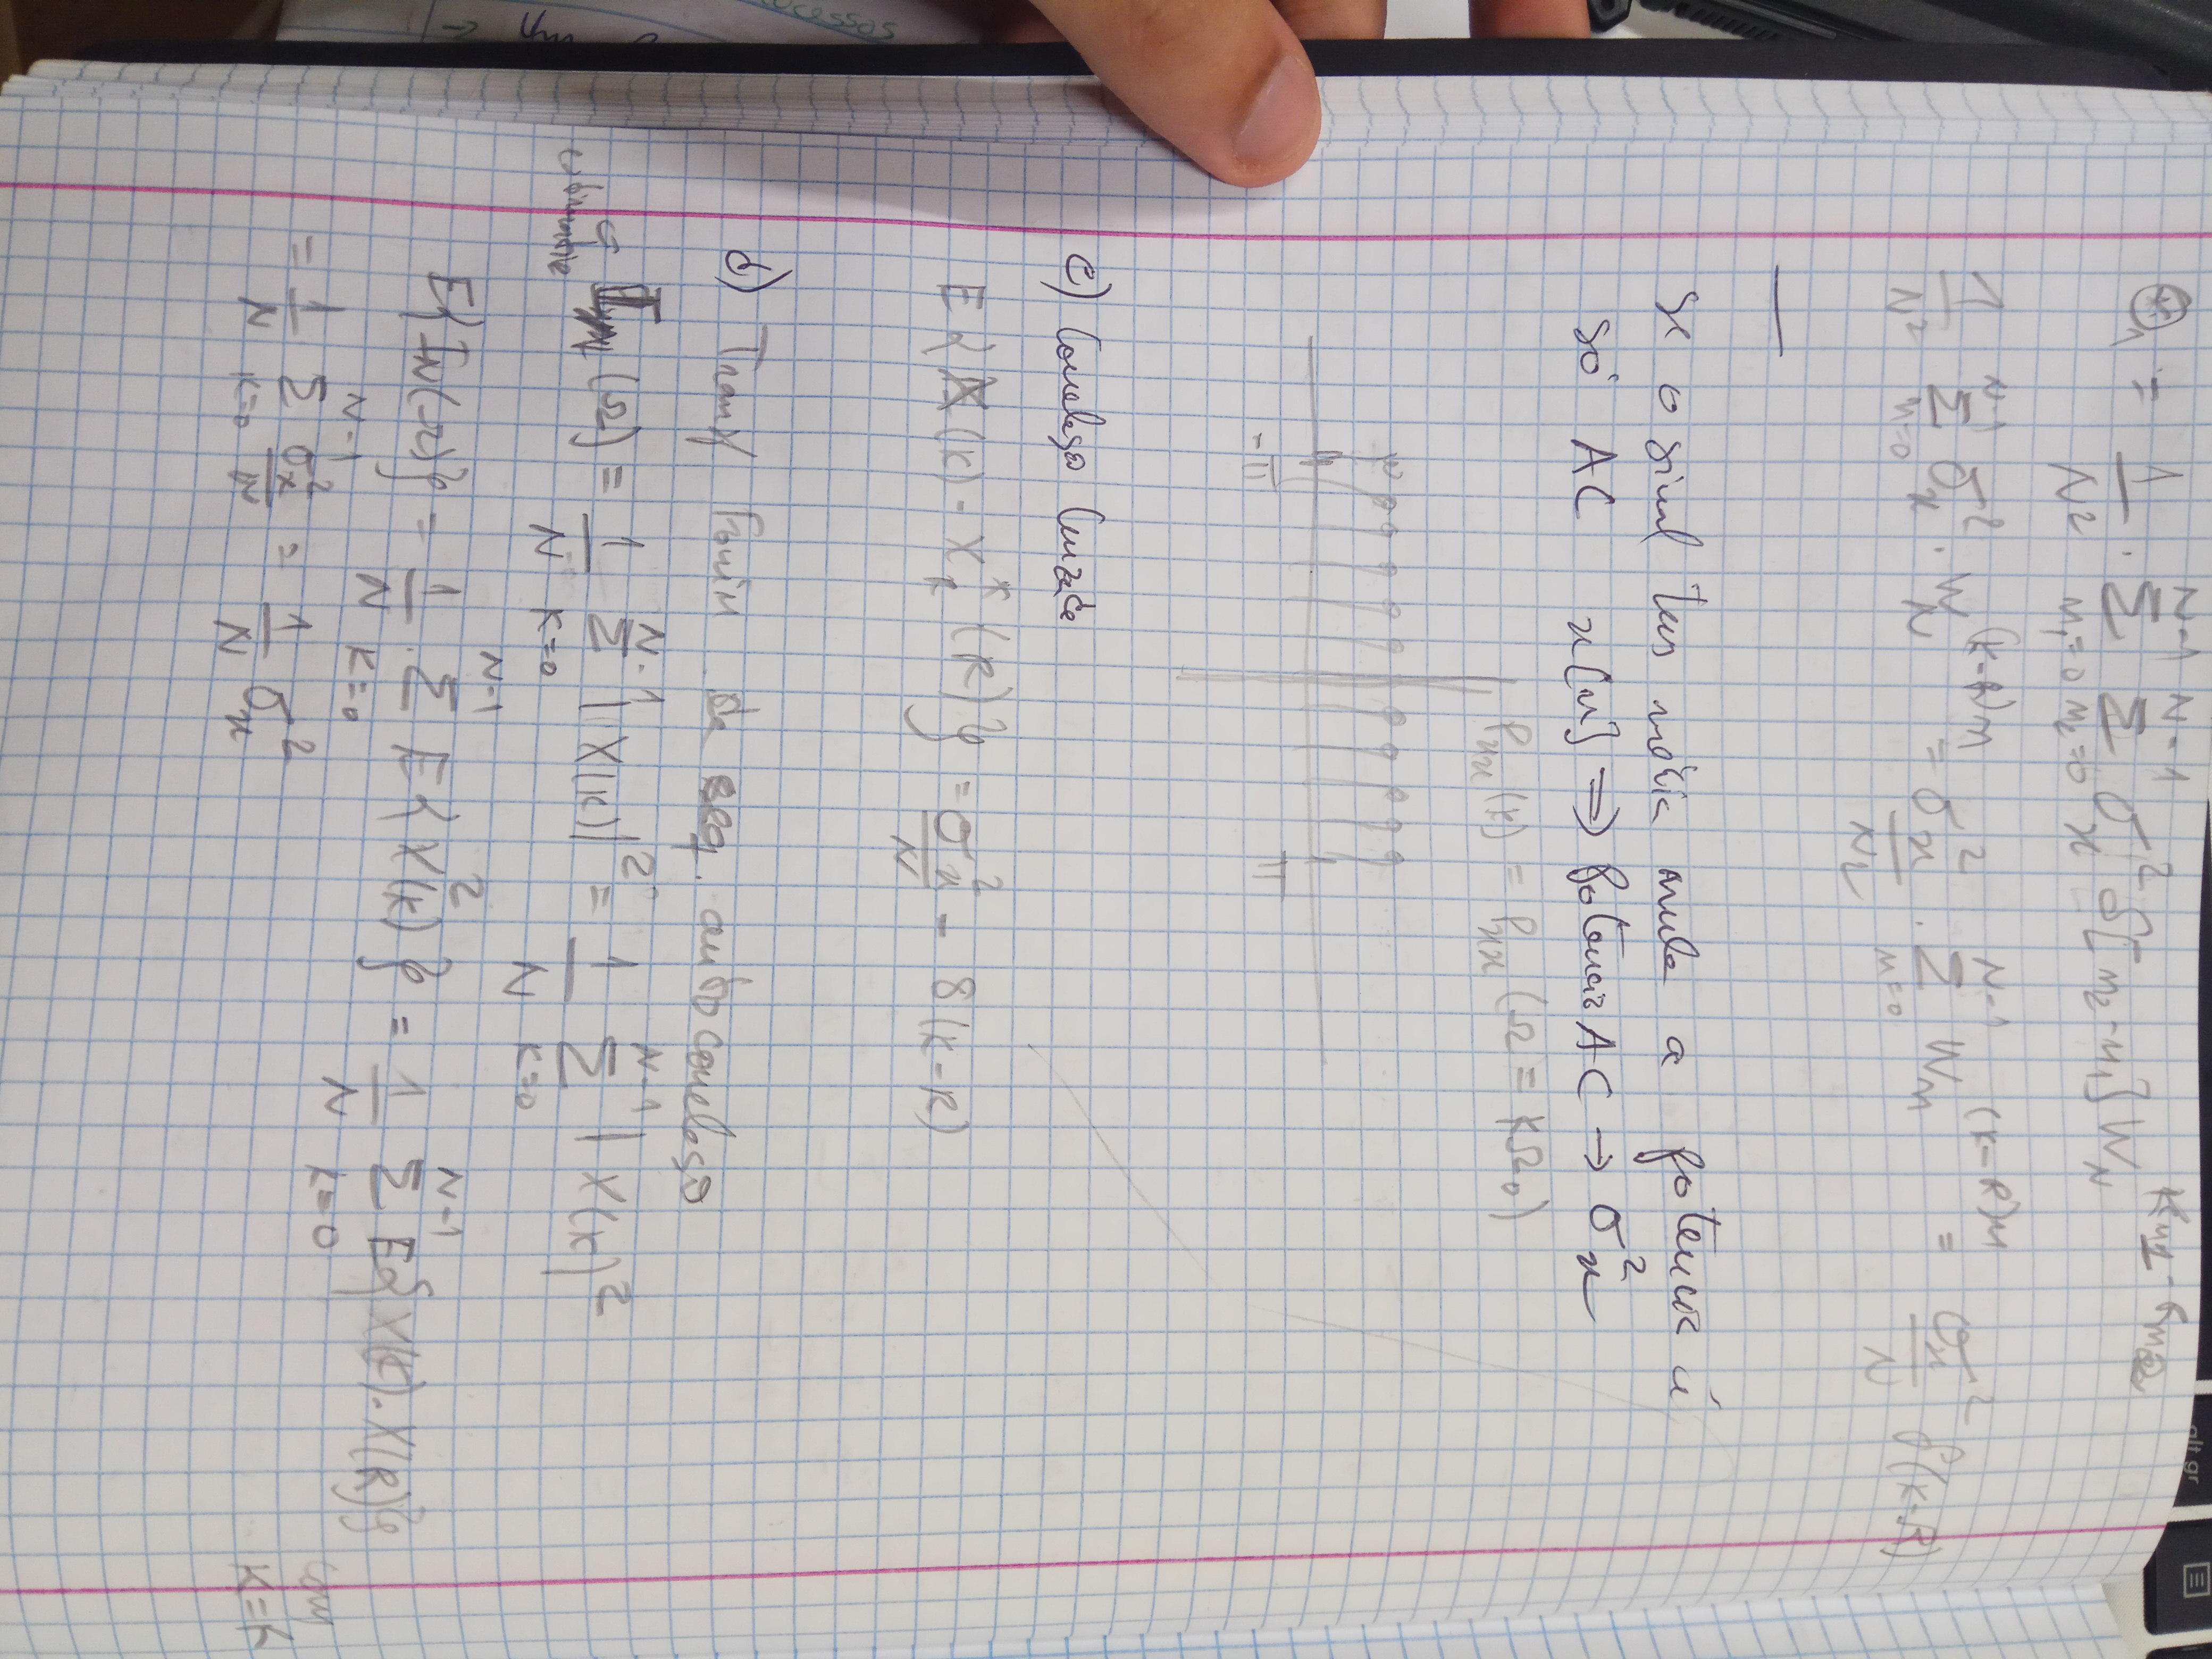 ⊛₁ = 1/N² · Σ_{n₁=0}^{N-1} Σ_{n₂=0}^{N-1} σx² δ[n₂-n₁] W_N^{Kn1 - Rn2}
1/N² Σ_{n=0}^{N-1} σx² · W_N^{(K-R)n} = σx²/N² · Σ_{n=0}^{N-1} W_n^{(K-R)n} = σx²/N δ(K-R)
Se o sinal tem média nula a potencia é
só AC x[n] ⇒ Potencia AC → σx²
Pxx(K) = Pxx(Ω = KΩ₀)
-π π
c) Correlação Cruzada
E{X(K) - X*_R(R)} = σx²/N - δ(K-R)
d) Transf Fourier da seq. autocorrelação
(Ω) = 1/N Σ_{K=0}^{N-1} |X(K)|² = 1/N Σ_{K=0}^{N-1} |X(K)²
E{I_N(Ω)} = 1/N · Σ_{K=0}^{N-1} E{X(K)²} = 1/N Σ_{K=0}^{N-1} E{X(K) · X(R)}
com
K=R
= 1/N Σ_{K=0}^{N-1} σx²/N = 1/N σx²
alt gr